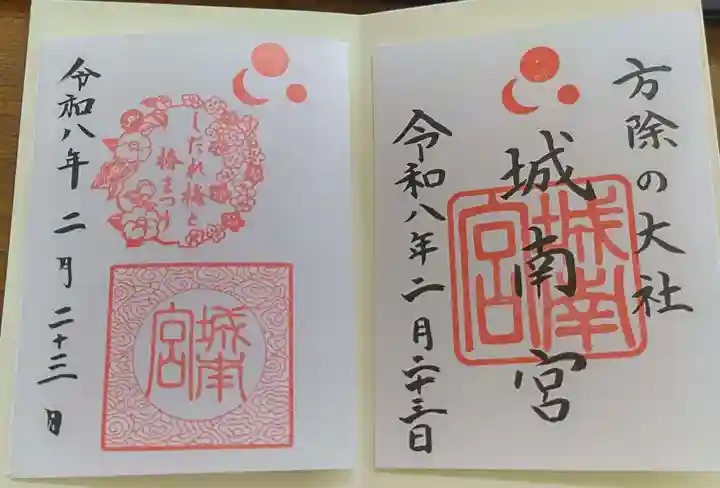 方除の大社
城南宮
城南宮
令和八年二月二十三日
しだれ梅と
椿まつり
令和八年二月二十三日
城南宮